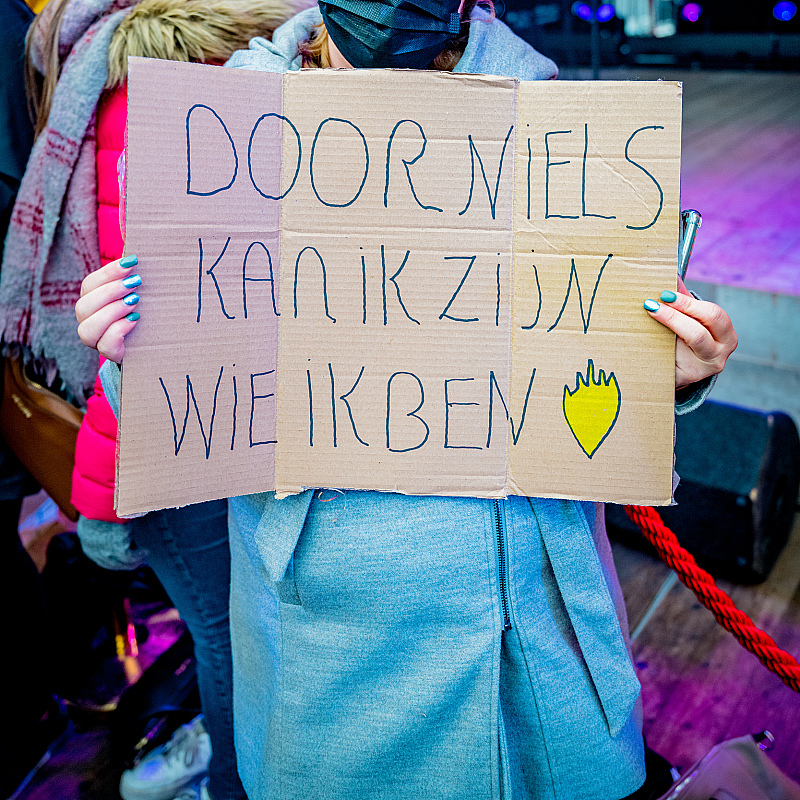 DOOR NiELS
KAN iK ZiJN
WiE iK BEN